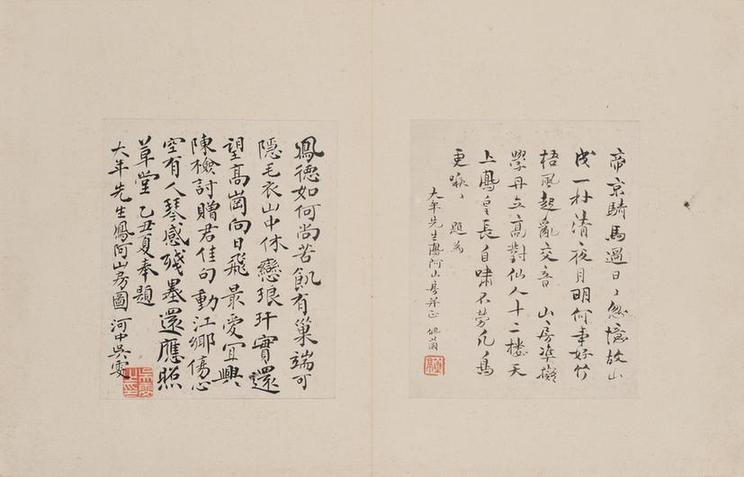 帝京騎馬過日〻忽憶故山
一村清夜月明何事好竹
梧風起亂交音 山房準擬
學丹丘高對仙人十二樓天
上鳳皇長自嘯不勞凡鳥
更啾〻 題為
大年先生鳳阿山房
鳳德如何尚苦飢有巢端可
隱毛衣山中休戀琅玕實還
望高崗向日飛最愛宜興
陳檢討贈君佳句動江鄉傷心
空有人琴感殘墨還應照
草堂 乙丑夏奉題
大年先生鳳阿山房圖 河中吳雯